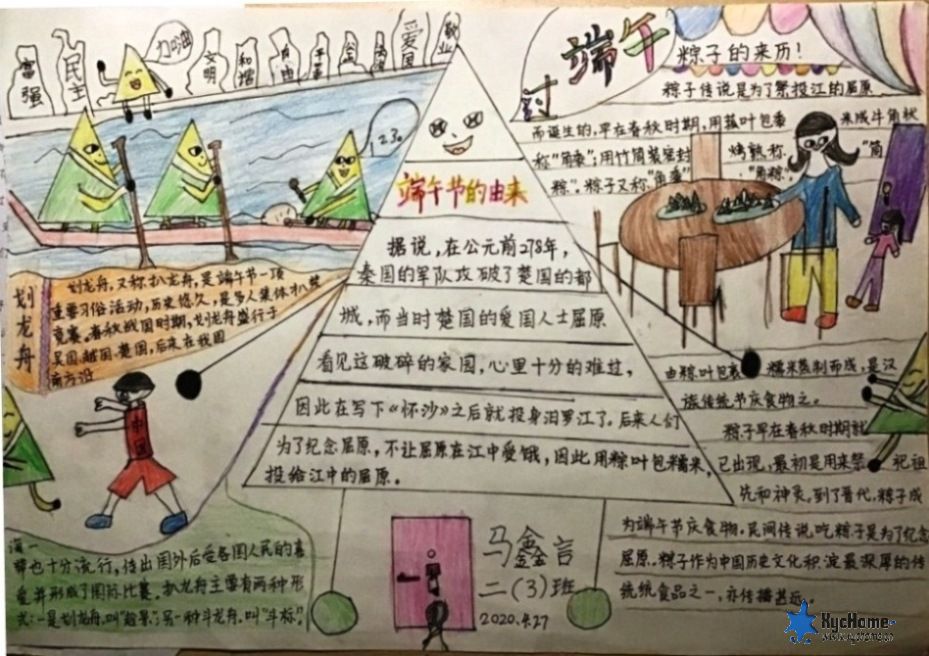 富强
民主
加油
文明
和谐
自由
平等
爱国
敬业
过端午
粽子的来历！
粽子传说是为了祭投江的屈原
而诞生的，早在春秋时期，用菰叶包黍 米成牛角状
称"角黍"；用竹筒装密封 烤熟称． "筒
粽"．粽子又称"角黍" ．"角粽"．
由粽叶包裹 糯米蒸制而成，是汉
族传统节庆食物之。
粽子早在春秋时期就
已出现，最初是用来祭 祀祖
先和神灵。到了晋代，粽子成
为端午节庆食物。民间传说，吃粽子是为了纪念
屈原。粽子作为中国历史文化积 淀最深厚的传
统统食品之一，亦传播甚远。
123
端午节的由来
据说，在公元前278年，
秦国的军队攻破了楚国的都
城，而当时楚国的爱国人士屈原
看见这破碎的家园，心里十分的难过，
因此在写下《怀沙》之后就投身汨罗江了。后来人们
为了纪念屈原，不让屈原在江中受饿，因此用粽叶包糯米，
投给江中的屈原。
划龙舟
划龙舟，又称扒龙舟，是端午节一项
重要习俗活动，历史悠久，是多人集体扒桨
竞赛。春秋战国时期，划龙舟盛行于
吴国、越国、楚国，后来在我国
南方沿
中国
海一
带也十分流行，传出国外后受各国人民的喜
爱并形成了国际比赛。扒龙舟主要有两种形
式：一是划龙舟，叫"趁景"；另一种斗龙舟，叫"斗标"。
马鑫言
二（3）班
2020.4.27
XycHome